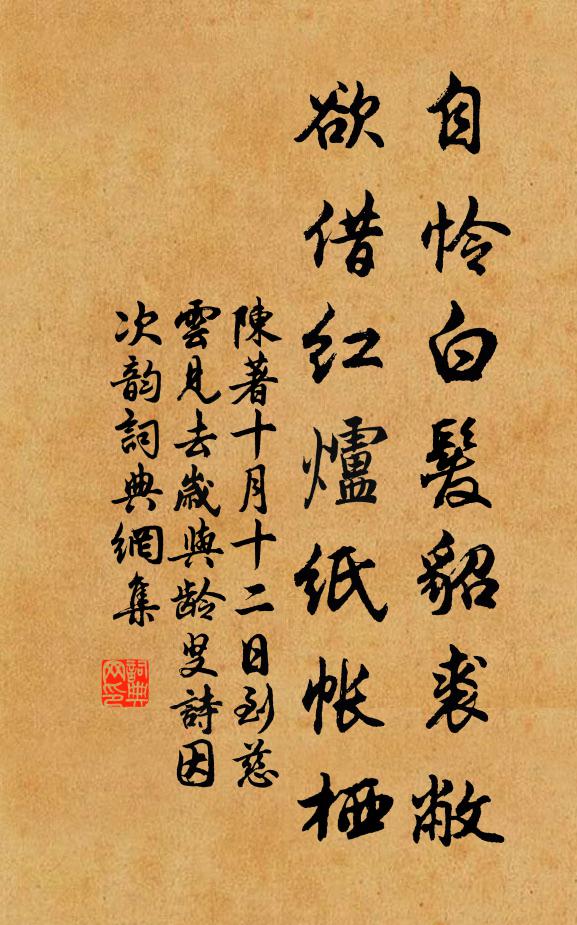 自怜白髮貂裘敝
欲借紅爐紙帳栖
陳著十月十二日到慈
雲見去歲與龄叟詩因
次韵詞典網集
詞典网印